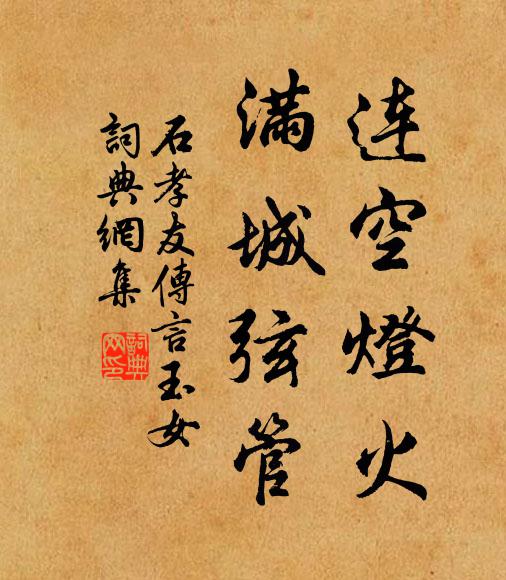 连空燈火
滿城弦管
石孝友傳言玉女
詞典網集
詞典
网印